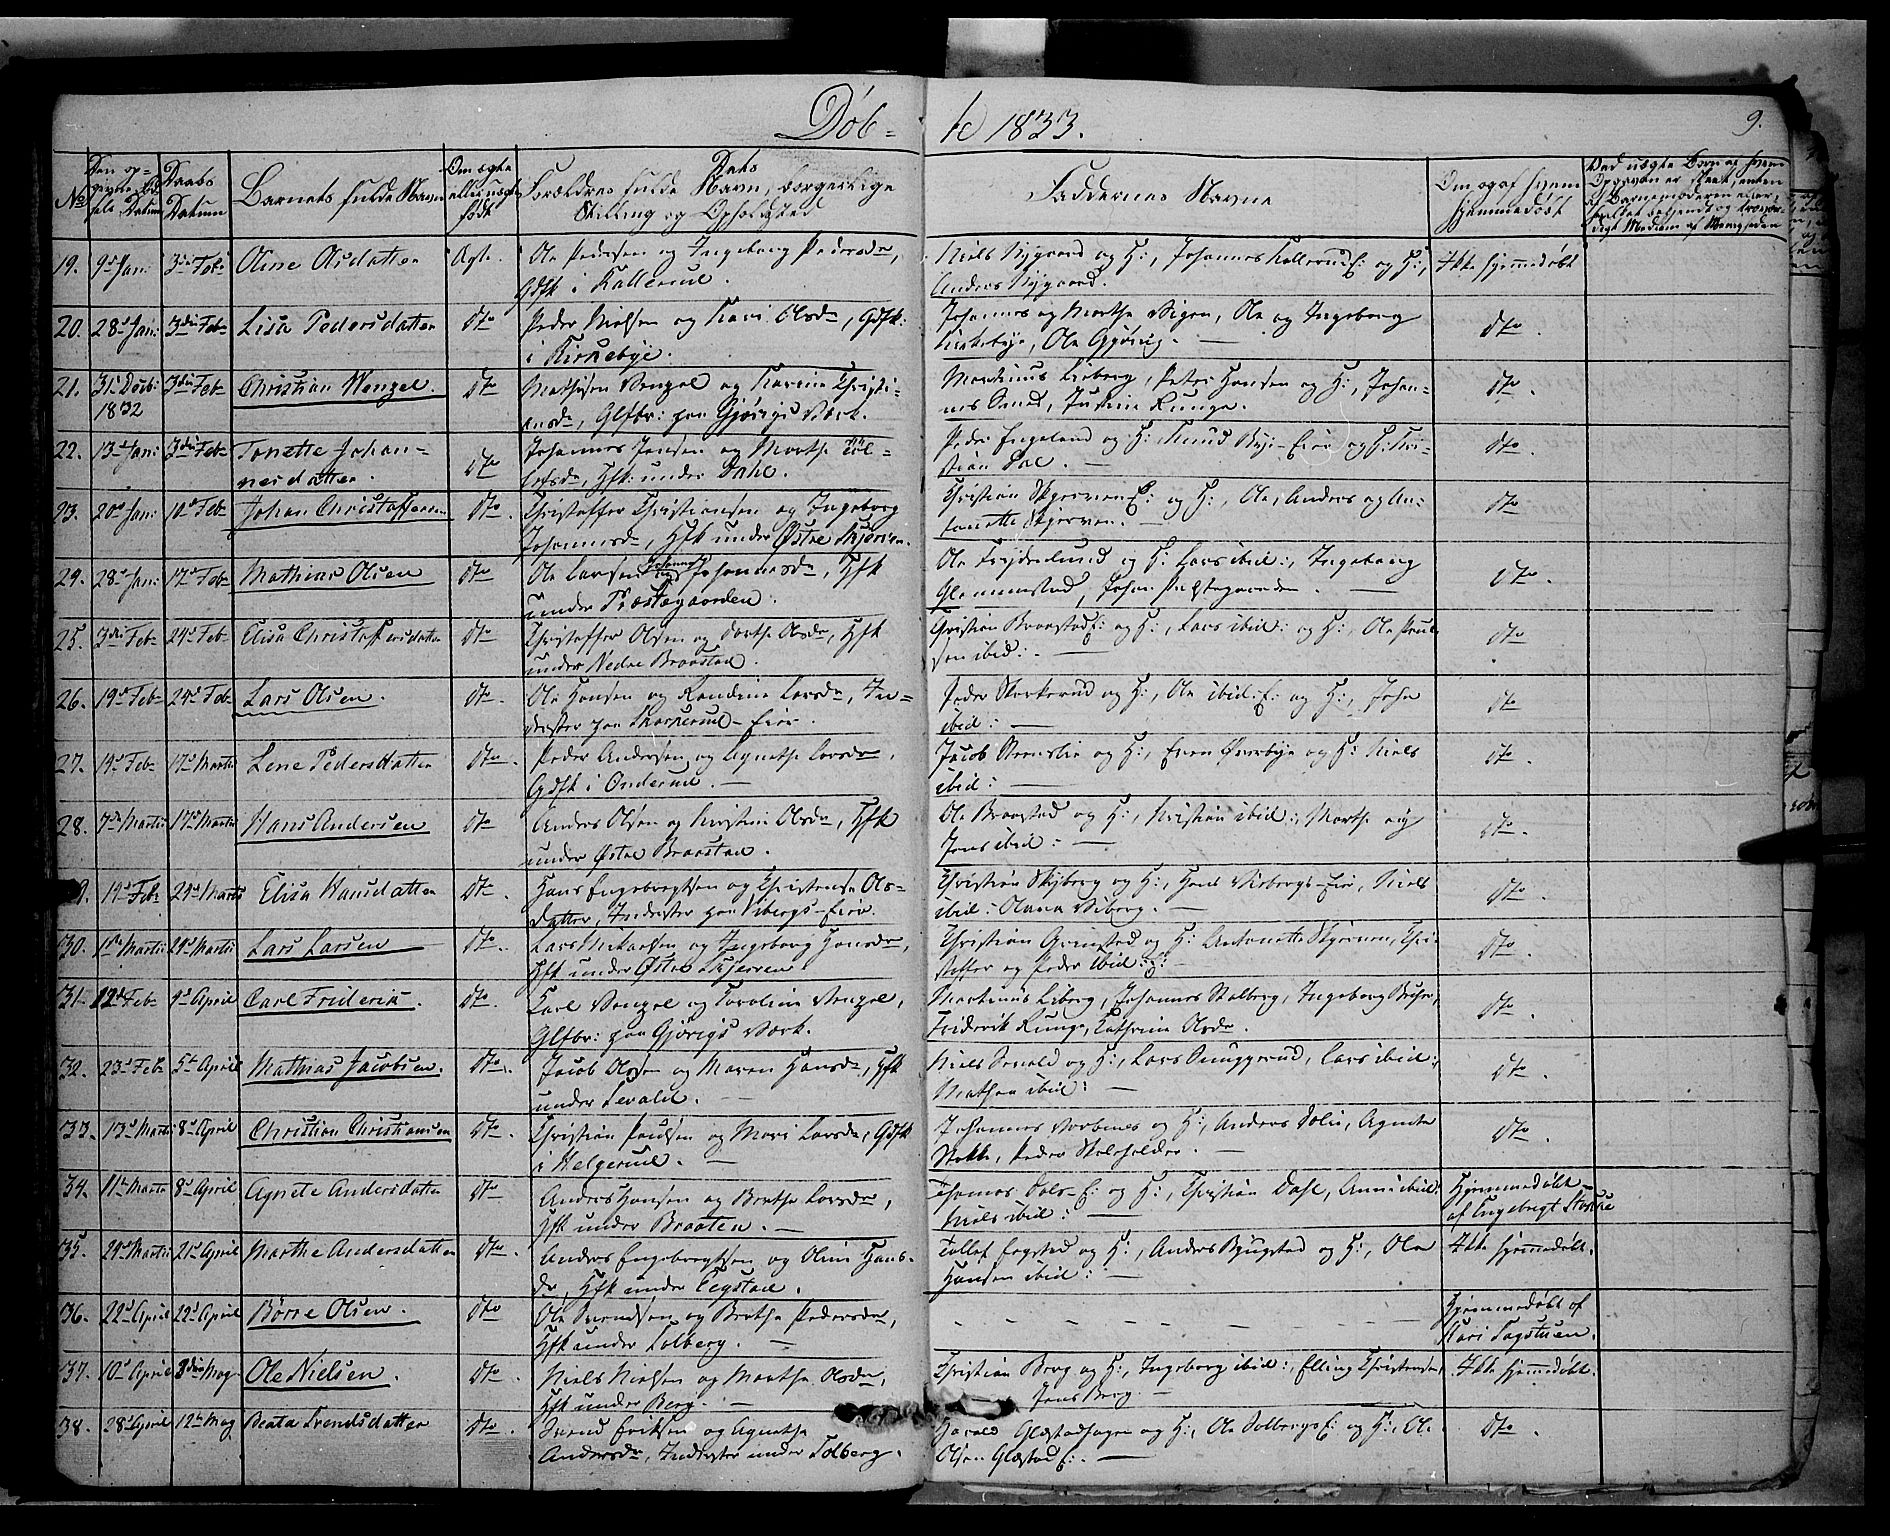 Døb- te 1833.
9.
No
Den op-
givne Fød-
sels Datum
Daabs
Datum
Barnets fulde Navn
Om ægte
eller uægte
født
Dets
Forældres fulde Navn, borgerlige
Stilling og Opholdsted
Faddernes Navne
Om og af hvem
hjemmedøbt
19. 9d Jan: 3die Feb: Oline Olsdatter Ægte. Ole Pedersen og Ingeborg Pedersdr,
Gdfk i Kallerud.
Niels Nygaard og H:, Johannes Kallerud E: og H:,
Anders Nygaard.
Ikke hjemmedøbt
20. 28d Jan: 3die Feb Lisa Pedersdatter dto Peder Nielsen og Kari Olsdr, Gdfk:
i Kirkebye.
Johannes og Marthe Vigen, Ole og Ingeborg
Kirkebye, Ole Gjøvig.
dto
21. 31. Decb: 3die Feb Christian Wenzel. dto Mathisen Wenzel og Karine Christi-
1832
ansdr, Glfbr: paa Gjøvigs Værk.
Martinus Liberg, Peter Hansen og H:, Johan-
nes Smed, Justine Runge.
dto
22. 13d Jan: 3die Feb Tonette Johan-
nesdatter.
dto
Johannes Jensen og Marthe Tol-
lefsdr, Hfk: under Dahl.
Peder Engeland og H: Knud Bye-Eie og H: Kri-
stian Dal.
dto
23. 20d Jan: 10d Feb Johan Christoffersen dto. Christoffer Christiansen og Ingeborg
Johannesdr, Hfk under Østre Skjerven.
Christian Skjerven E: og H:, Ole, Anders og An-
tonette Skjerven.
dto
24. 28d Jan: 17d Feb Mathias Olsen dto. Ole Larsen og Johannesdr, Hfk
under Præstegaarden.
Ole Frydenlund og H: Lars ibid:, Ingeborg
Glemmestad, Johan Præstegaarden.
dto.
25. 3die Feb 24d Feb Elisa Christoffersdatter dto Christoffer Olsen og Dorthe Olsdr, Hfk
under Nedre Braastad.
Christian Braastad E: og H:, Lars ibid: og H:, Ole Poul-
sen ibid:
dto
26. 19d Feb 24d Feb Lars Olsen. dto. Ole Hansen og Randine Larsdr, In-
derster paa Skarkerud-Eie.
Peder Skarkerud og H:, Ole ibid: E: og H:, John
ibid:
dto
27. 19d Feb 17d Martii Lene Pedersdatter dto. Peder Andersen og Agnethe Larsdr,
Gdfk i Onderud.
Jacob Stenslie og H:, Even Øverbye og H: Niels
ibid:
dto.
28. 7de Martii 17d Martii Hans Andersen dto Anders Olsen og Kirstine Olsdr, Hfk
under Østre Braastad.
Ole Braastad og H:, Kristian ibid:, Marthe og
Jens ibid:
dto.
9. 19d Feb 24d Martii Elisa Hansdatter dto. Hans Engebregtsen og Christense Ols-
datter, Inderster paa Vibergs-Eie.
Christian Skyberg og H:, Hans Vibergs-Eie, Niels
ibid: Olava Viberg.
dto
30. Martii 24d Martii Lars Larsen dto. Lars Mikaelsen og Ingeborg Hansdr,
Hfk under Østre Skjerven.
Christian Grimstad og H: Antonette Skjerven, Chri-
stoffer og Peder ibid: E:
dto.
31. 12d Feb 1d April Carl Friderik. dto. Carl Wenzel og Caroline Wenzel,
Glfbr: paa Gjøvigs Værk.
Martinus Liberg, Johannes Stalberg, Ingeborg
Friderik Runge, Cathrine Olsdr.
dto.
32. 23d Feb 5te April Mathias Jacobsen. dto. Jacob Olsen og Maren Hansdr, Hfk
under Sevald.
Niels Sevald og H:, Lars Snuggerud, Lars ibid:,
Mathea ibid:
dto.
33. 13d Martii 8d April Christian Christiansen dto. Christian Poulsen og Mari Larsdr, Gdfk
i Helgerud.
Johannes Narbenes og H:, Anders Dolin, Agnete
Stokke, Peder Skoleholder.
dto.
34. 11te Martii 8d April Agnete Andersdatter dto Anders Hansen og Berthe Larsdr,
Hfk under Braaten.
Thomas Dals-E: og H:, Christian Dahl, Anne ibid:,
Niels ibid:
Hjemmedøbt
af Ingebregt Stokke
35. 24d Martii 21d April Marthe Andersdatter dto. Anders Engebregtsen og Oline Hans-
dr, Hfk under Fegstad.
Tollef Fegstad og H:, Anders Bjugstad og H:, Ole
Hansen ibid:
Ikke hjemmedøbt.
36. 22d April 22d April Børre Olsen. dto Ole Svendsen og Berthe Pedersdr,
Hfk under Tolberg.
Hjemmedøbt af
Kari Tagstuen.
37. 10d April 3die May Ole Nielsen. dto. Niels Nielsen og Marthe Olsdr,
Hfk under Berg.
Christian Berg og H:, Ingeborg ibid:, Elling Christensen,
Jens Berg.
Ikke hjemmedøbt.
38. 28d April 12te May Beata Svendsdatter dto. Svend Eriksen og Agnethe
Andersdr, Inderster under Tolberg.
Harald Glæstadhagen og H:, Ole Solbergs E: og H:, Ole
Olsen Glæstad E:
dto.